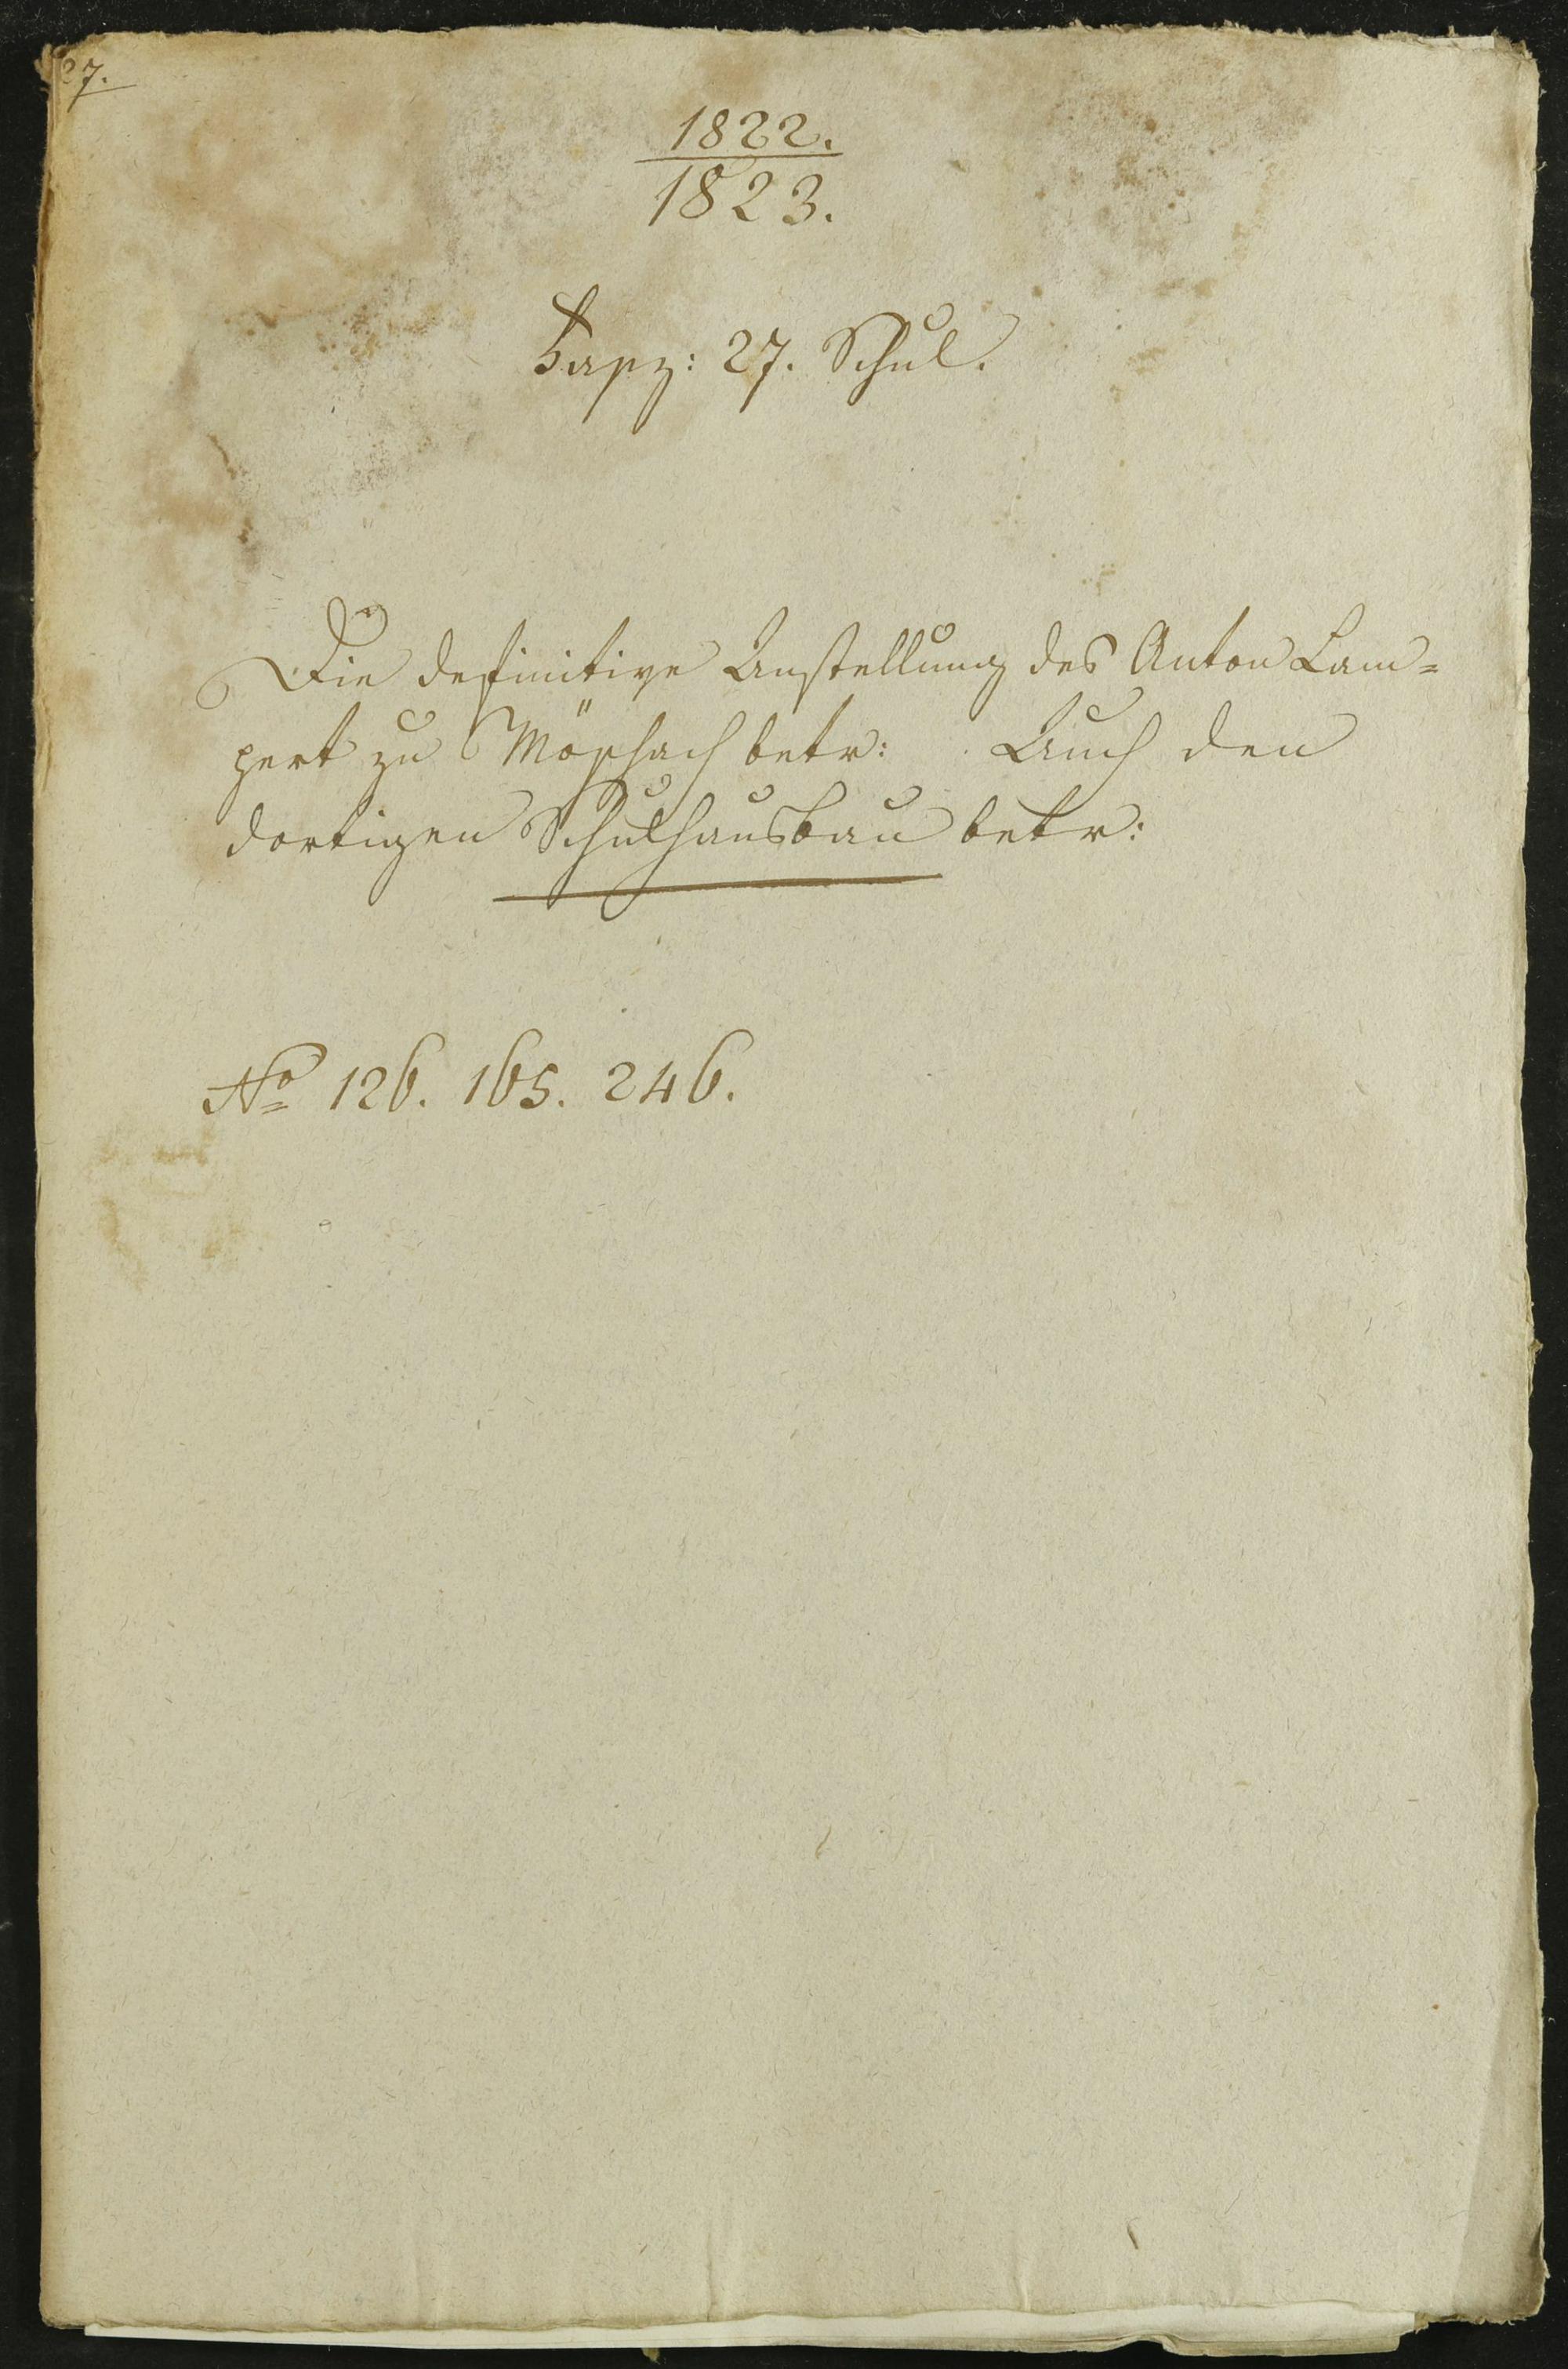 27.
1822.
1823.
Fasz: 27. Schul.
Die definitive Anstellung des Anton Lam=
pert zu Möschach betr: Auch den
dortigen Schulhausbau betr:
No 126. 165. 246.